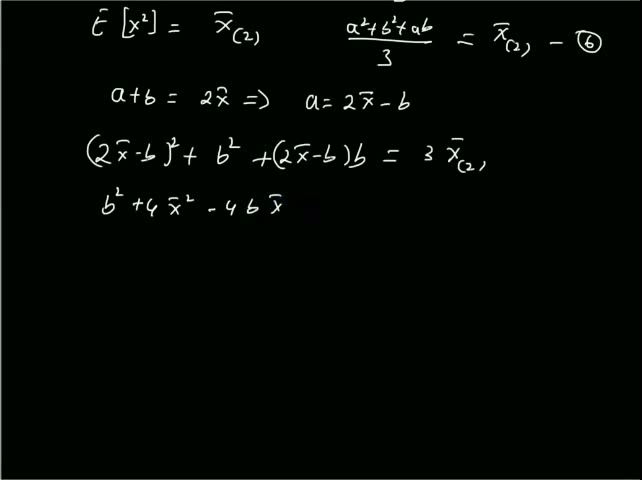 E [x²] = x̄₍₂₎   (a²+b²+ab)/3 = x̄₍₂₎ - ⑥
a+b = 2x̄ => a = 2x̄ - b
(2x̄-b)² + b² + (2x̄-b)b = 3 x̄₍₂₎
b² + 4 x̄² - 4 b x̄